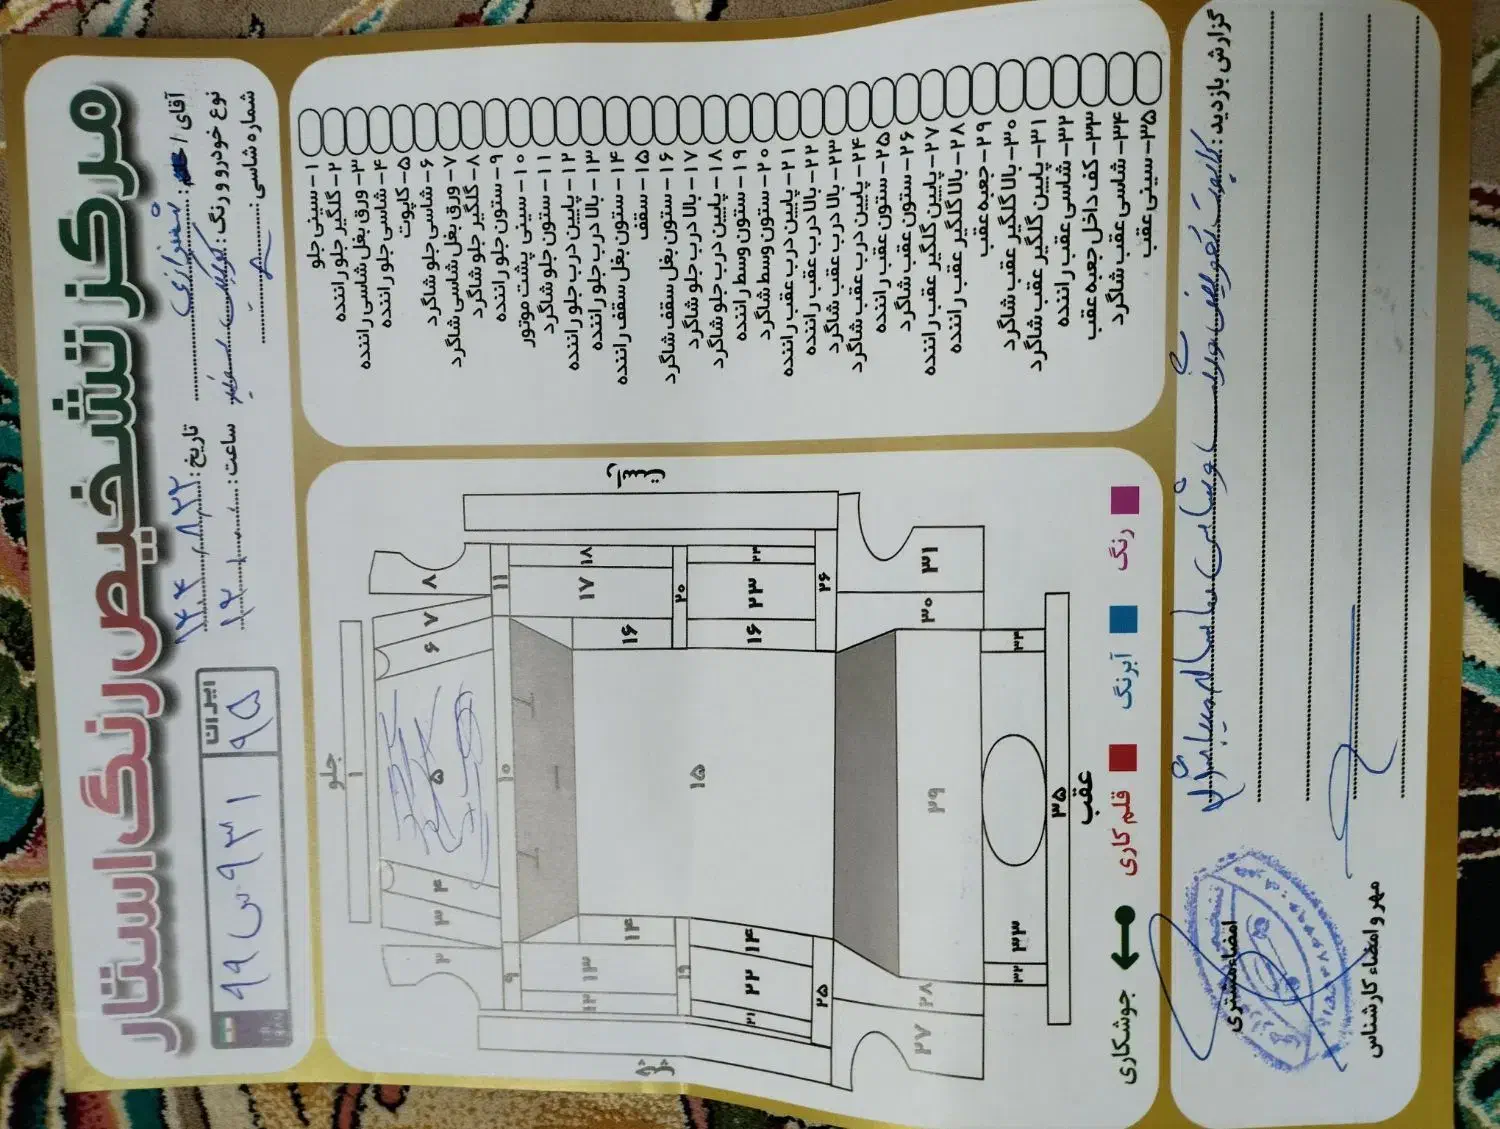 مرکز تشخیص رنگ استار
آقای / خانم : شیرازی
تاریخ : ۱۴۰۴/۸/۲۲
نوع خودرو و رنگ : کوییک سفید
ساعت : ۱۲/۱۰
شماره شاسی :
ایران
۹۹ س ۹۳۱ ۹۵
۱- سینی جلو
۲- گلگیر جلو راننده
۳- ورق بغل شاسی راننده
۴- شاسی جلو راننده
۵- کاپوت
۶- شاسی جلو شاگرد
۷- ورق بغل شاسی شاگرد
۸- گلگیر جلو شاگرد
۹- ستون جلو راننده
۱۰- سینی پشت موتور
۱۱- ستون جلو شاگرد
۱۲- پایین درب جلو راننده
۱۳- بالا درب جلو راننده
۱۴- ستون بغل سقف راننده
۱۵- سقف
۱۶- ستون بغل سقف شاگرد
۱۷- بالا درب جلو شاگرد
۱۸- پایین درب جلو شاگرد
۱۹- ستون وسط راننده
۲۰- ستون وسط شاگرد
۲۱- پایین درب عقب راننده
۲۲- بالا درب عقب راننده
۲۳- بالا درب عقب شاگرد
۲۴- پایین درب عقب شاگرد
۲۵- ستون عقب راننده
۲۶- ستون عقب شاگرد
۲۷- پایین گلگیر عقب راننده
۲۸- بالا گلگیر عقب راننده
۲۹- جعبه عقب
۳۰- بالا گلگیر عقب شاگرد
۳۱- پایین گلگیر عقب شاگرد
۳۲- شاسی عقب راننده
۳۳- کف داخل جعبه عقب
۳۴- شاسی عقب شاگرد
۳۵- سینی عقب
جلو
۱
۲ ۳ ۴ ۵ ۶ ۷ ۸
۹ ۱۰ ۱۱
۱۲ ۱۳ ۱۴ ۱۵ ۱۶ ۱۷ ۱۸
۱۹ ۲۰
۲۱ ۲۲ ۱۴ ۱۶ ۲۳ ۲۴
۲۵ ۲۶
۲۷ ۲۸ ۲۹ ۳۰ ۳۱
۳۲ ۳۳ ۳۴
۳۵
عقب
جوشکاری
قلم کاری
آبرنگ
رنگ
گزارش بازدید : کاپوت تعویض فابریک
امضاء مشتری
مهر و امضاء کارشناس